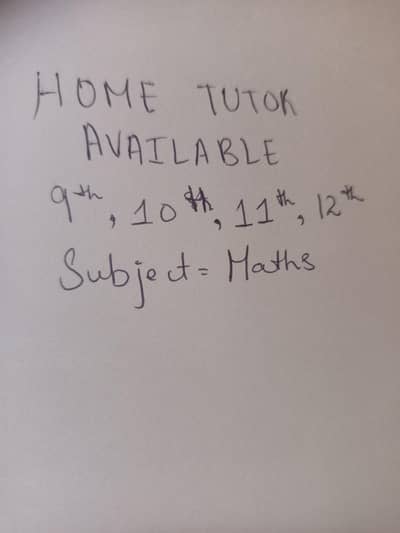 HOME TUTOR
AVAILABLE
9th, 10th, 11th, 12th
Subject = Maths